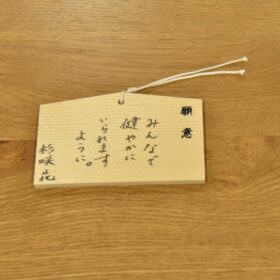 願意
みんなで
健やかに
いられます
ように。
杉咲花